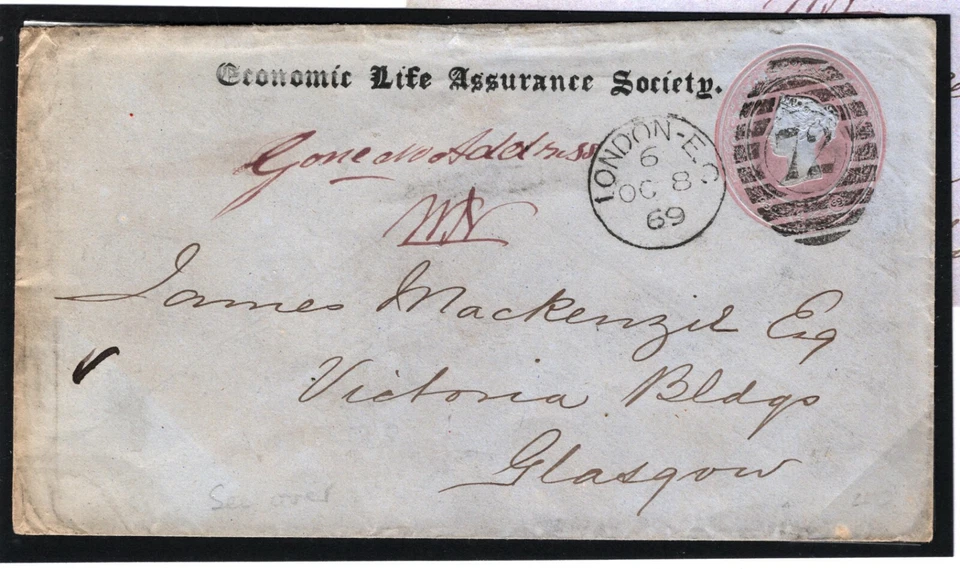 Economic Life Assurance Society.
Gone no Address
LONDON-E.C
6
OC 8
69
72
James Mackenzie Esq
Victoria Bldgs
Glasgow
See over